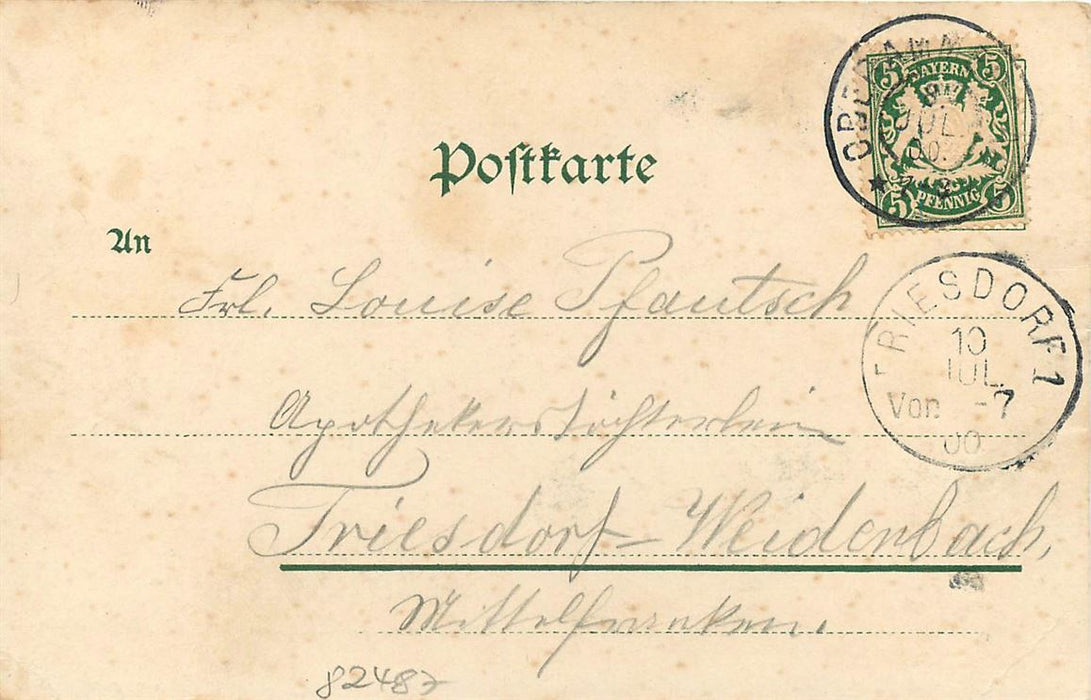 Postkarte
An
Frl. Louise Pfautsch
Apothekerstöchterlein
Triesdorf-Weidenbach,
Mittelfranken.
82487
BAYERN
5 5
5 5
PFENNIG
JUL
00.
TRIESDORF 1
10
JUL.
Vor. -7
00